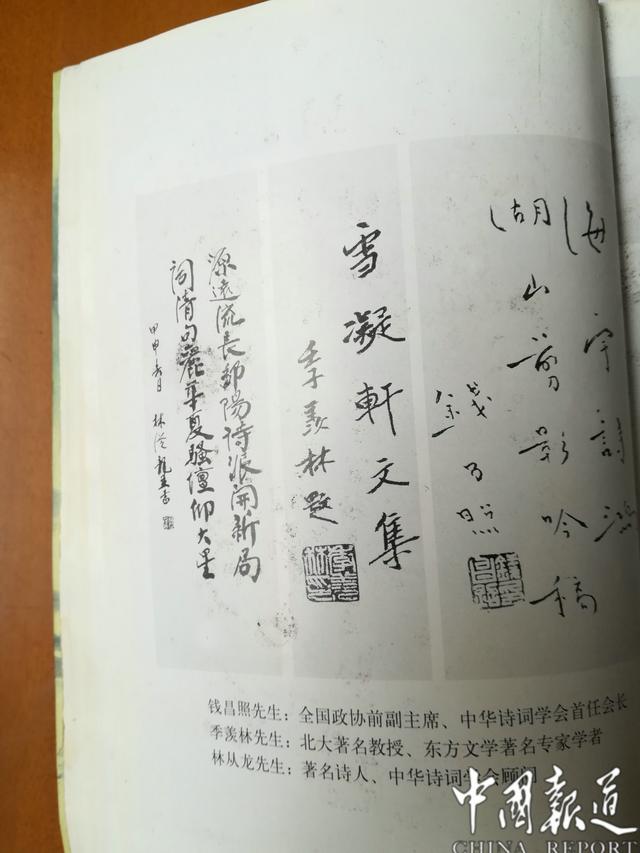 海宇詩鴻
湖山剪影吟稿
錢昌照
雪凝軒文集
季羨林題
季羨林印
源遠流長邵陽詩派開新局
词清句麗華夏騷壇仰大星
甲申春日 林從龍並書
钱昌照先生：全国政协前副主席、中华诗词学会首任会长
季羡林先生：北大著名教授、东方文学著名专家学者
林从龙先生：著名诗人、中华诗词学会顾问
中國報道
CHINA REPORT